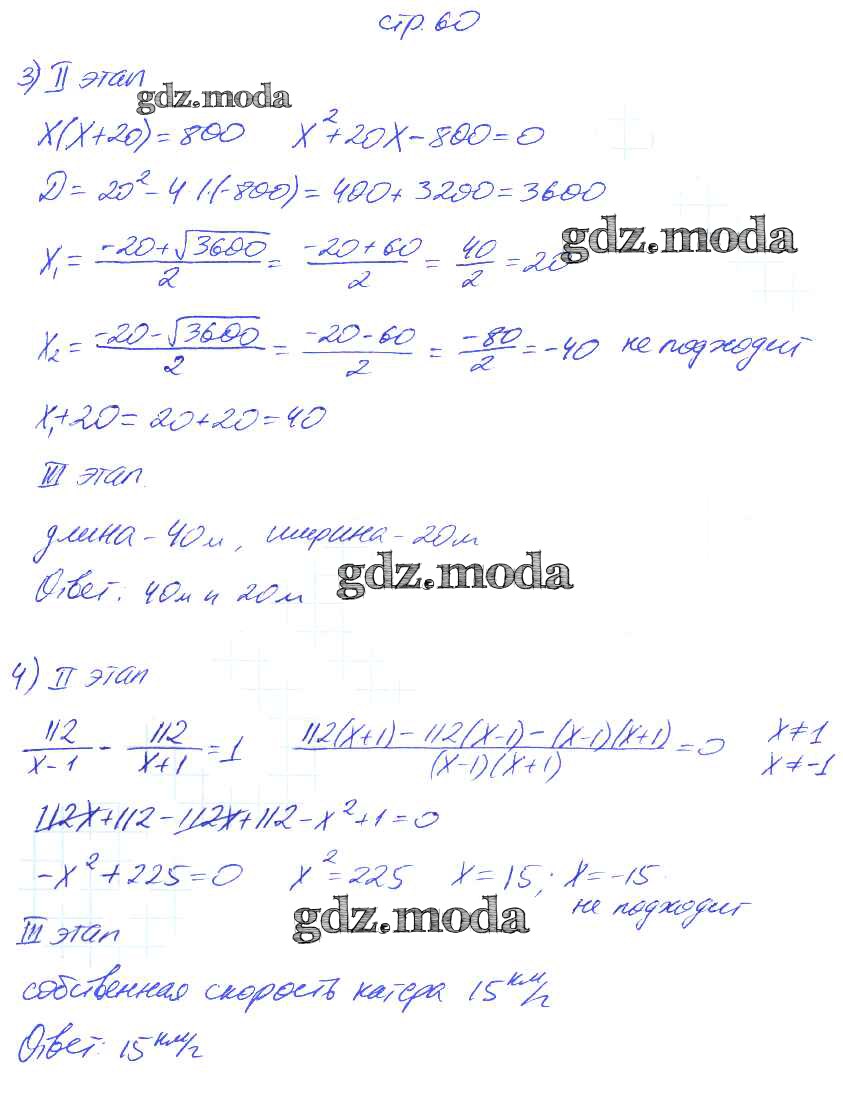 стр. 60
3) II этап
gdz.moda
x(x+20)=800 x²+20x-800=0
D=20²-4·1·(-800)=400+3200=3600
gdz.moda
x₁=(-20+√3600)/2=(-20+60)/2=40/2=20
x₂=(-20-√3600)/2=(-20-60)/2=-80/2=-40 не подходит
x₁+20=20+20=40
III этап.
длина-40м, ширина-20м
gdz.moda
Ответ: 40м и 20м
4) II этап
112/(x-1) - 112/(x+1)=1 (112(x+1)-112(x-1)-(x-1)(x+1))/((x-1)(x+1))=0 x≠1
x≠-1
112x+112-112x+112-x²+1=0
-x²+225=0 x²=225 x=15; x=-15
не подходит
gdz.moda
III этап
собственная скорость катера 15 км/ч
Ответ: 15 км/ч